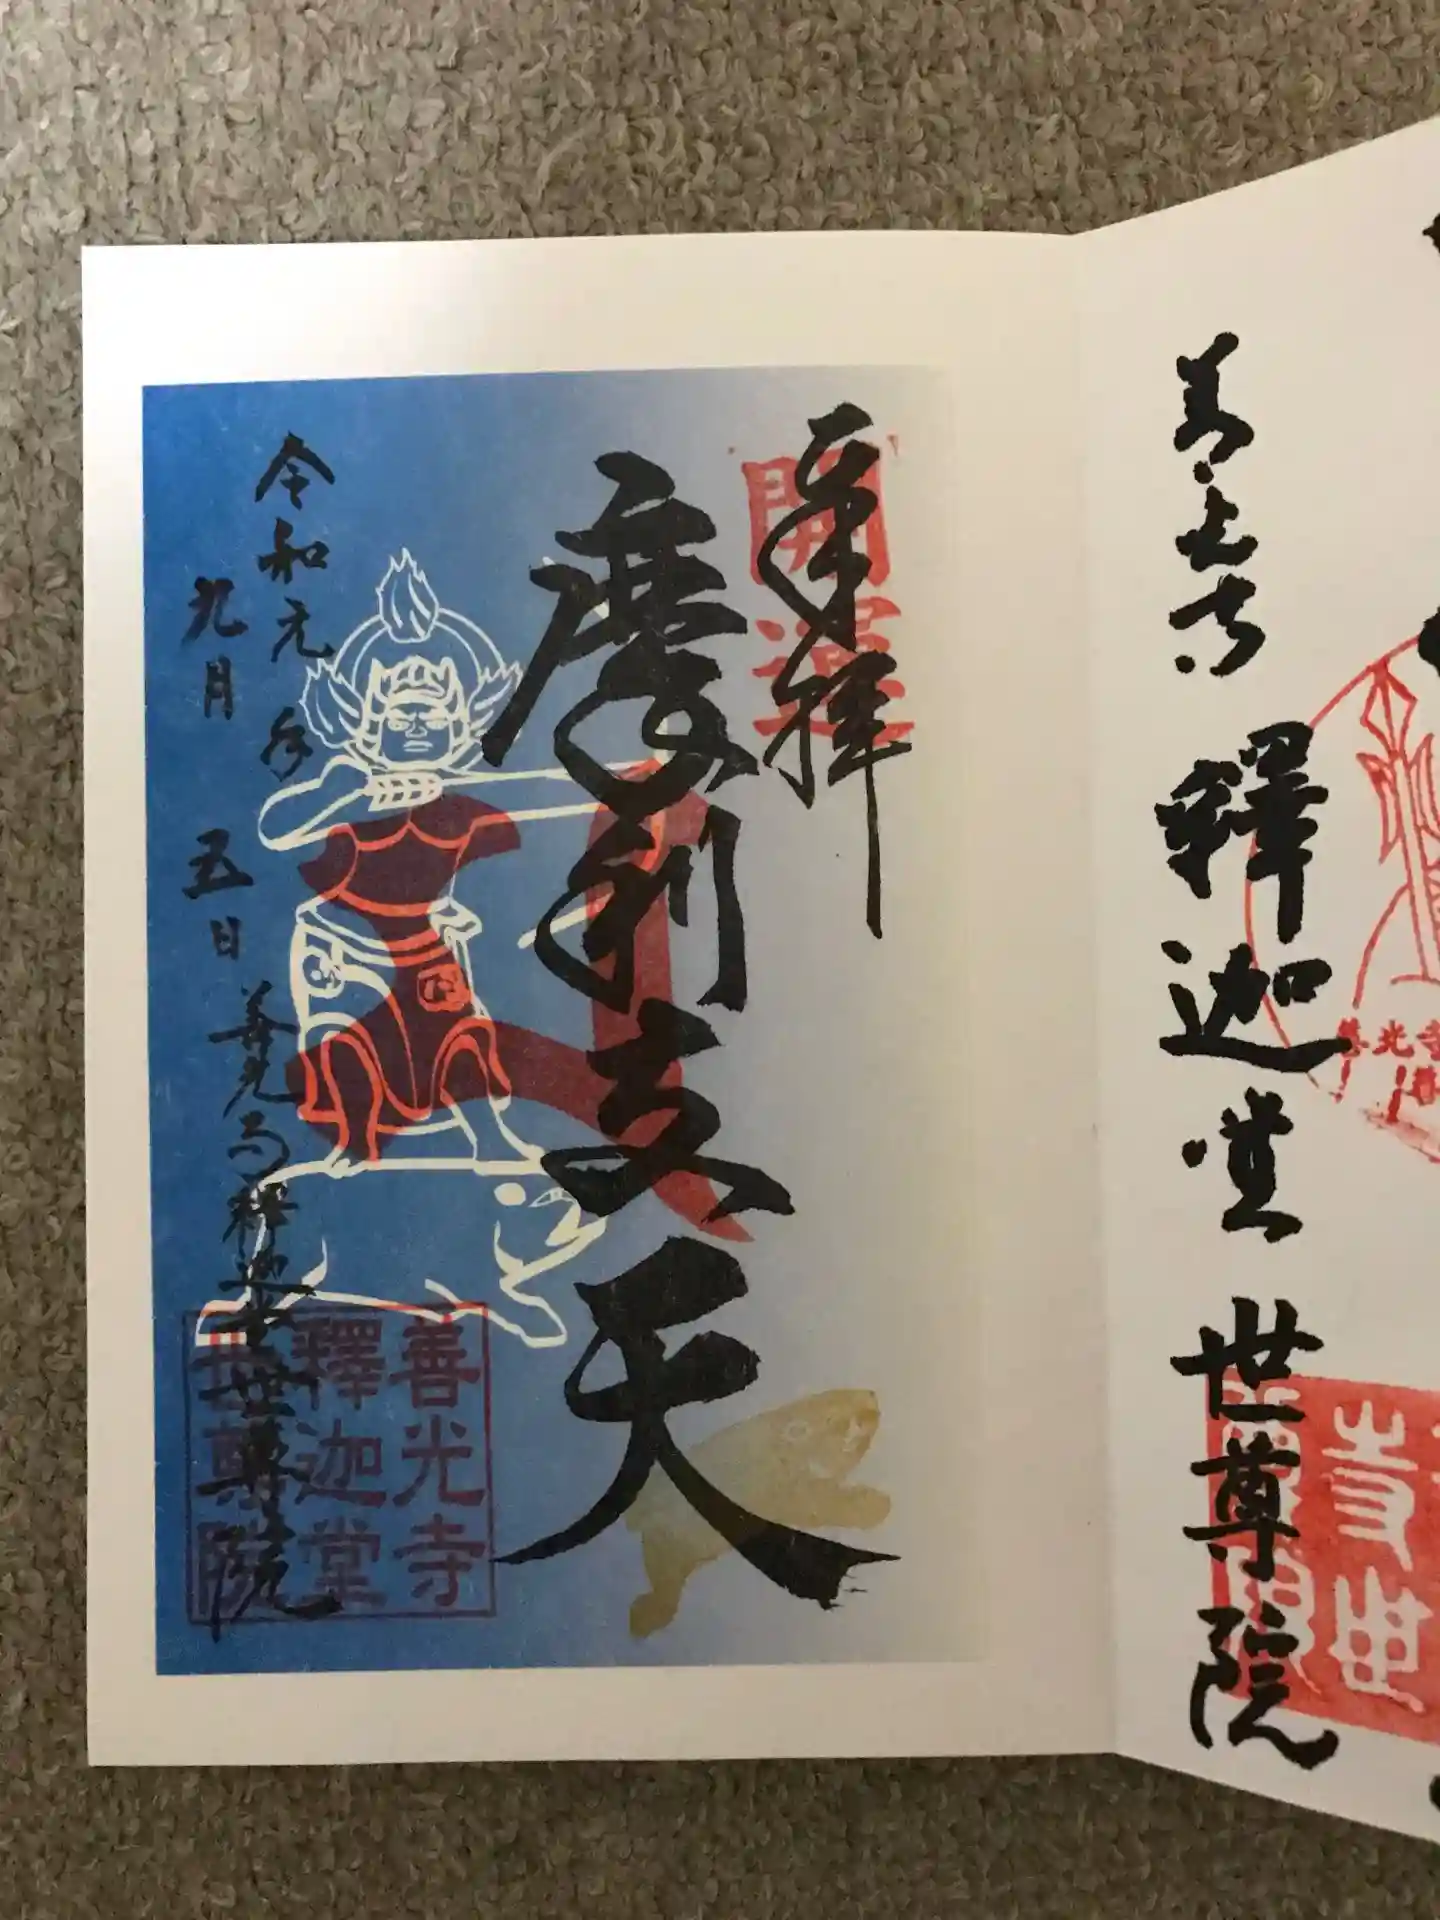 善光寺 釋迦堂 世尊院
善光寺
奉拝
開運
摩利支天
令和元年
九月五日
善光寺釋迦堂世尊院
善光寺
釋迦堂
世尊院